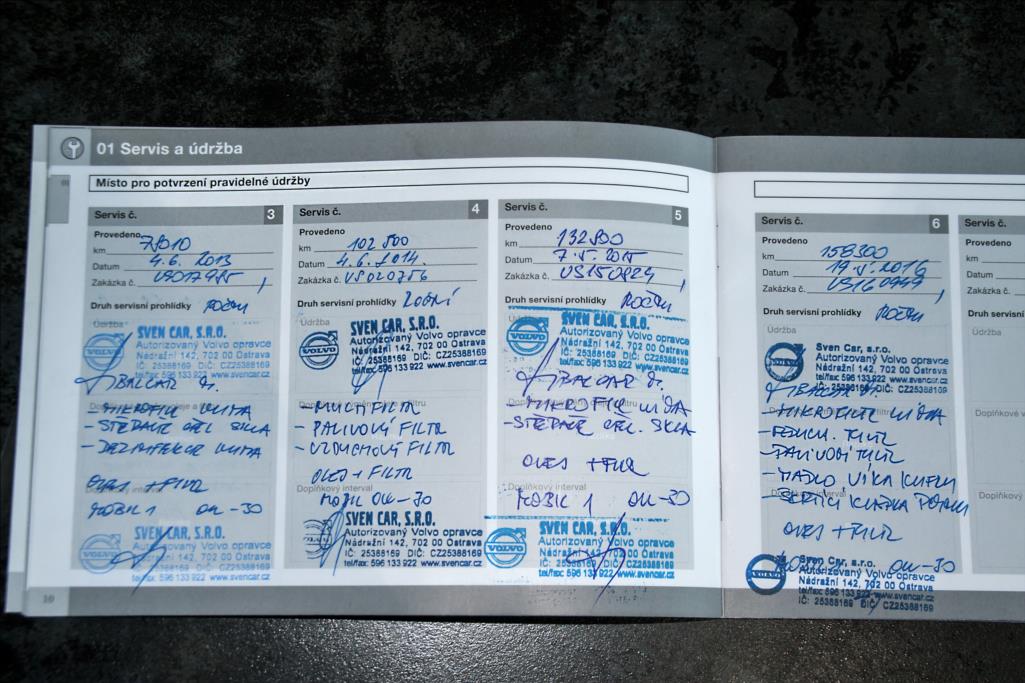 01 Servis a údržba
Místo pro potvrzení pravidelné údržby
Servis č. 3
Provedeno
km 78010
Datum 4.6.2013
Zakázka č.
Druh servisní prohlídky ROČNÍ
Údržba
SVEN CAR, S.R.O.
Autorizovaný Volvo opravce
Nádražní 142, 702 00 Ostrava
IČ: 25388169 DIČ: CZ25388169
tel/fax: 596 133 922 www.svencar.cz
- MIKROFILTR
- STĚRAČE ČEL SKLA
- DEZINFEKCE
OLEJ + FILTR
Doplňkový interval
MOBIL 1 OW-30
SVEN CAR, S.R.O.
Autorizovaný Volvo opravce
Nádražní 142, 702 00 Ostrava
IČ: 25388169 DIČ: CZ25388169
tel/fax: 596 133 922 www.svencar.cz
10
Servis č. 4
Provedeno
km 102 800
Datum 4.6.2014.
Zakázka č. US020756
Druh servisní prohlídky ROČNÍ
Údržba
SVEN CAR, S.R.O.
Autorizovaný Volvo opravce
Nádražní 142, 702 00 Ostrava
IČ: 25388169 DIČ: CZ25388169
tel/fax: 596 133 922 www.svencar.cz
- MULTIFILTR
- PALIVOVÝ FILTR
- VZDUCHOVÝ FILTR
OLEJ + FILTR
Doplňkový interval
MOBIL OW-30
SVEN CAR, S.R.O.
Autorizovaný Volvo opravce
Nádražní 142, 702 00 Ostrava
IČ: 25388169 DIČ: CZ25388169
tel/fax: 596 133 922 www.svencar.cz
Servis č. 5
Provedeno
km 132800
Datum 7.5.2015
Zakázka č. US150824
Druh servisní prohlídky ROČNÍ
SVEN CAR, S.R.O.
Autorizovaný Volvo opravce
Nádražní 142, 702 00 Ostrava
IČ: 25388169 DIČ: CZ25388169
tel/fax: 596 133 922 www.svencar.cz
- MIKROFILTR
- STĚRAČE ČEL. SKLA
OLEJ + FILTR
Doplňkový interval
MOBIL 1 OW-30
SVEN CAR, S.R.O.
Autorizovaný Volvo opravce
Nádražní 142, 702 00 Ostrava
IČ: 25388169 DIČ: CZ25388169
tel/fax: 596 133 922 www.svencar.cz
Servis č. 6
Provedeno
km 158300
Datum 19.5.2016
Zakázka č. US160949
Druh servisní prohlídky ROČNÍ
Údržba
Sven Car, s.r.o.
Autorizovaný Volvo opravce
Nádražní 142, 702 00 Ostrava
IČ: 25388169 DIČ: CZ25388169
tel/fax: 596 133 922 www.svencar.cz
- MIKROFILTR
- PALIVOVÝ FILTR
- MADLO VÍKA KUFRU
OLEJ + FILTR
OW-30
Sven Car, s.r.o.
Autorizovaný Volvo opravce
Nádražní 142, 702 00 Ostrava
tel/fax: 596 133 922 www.svencar.cz
IČ: 25388169 DIČ: CZ25388169
Servis č.
Provedeno
km
Datum
Zakázka č.
Druh servisní
Údržba